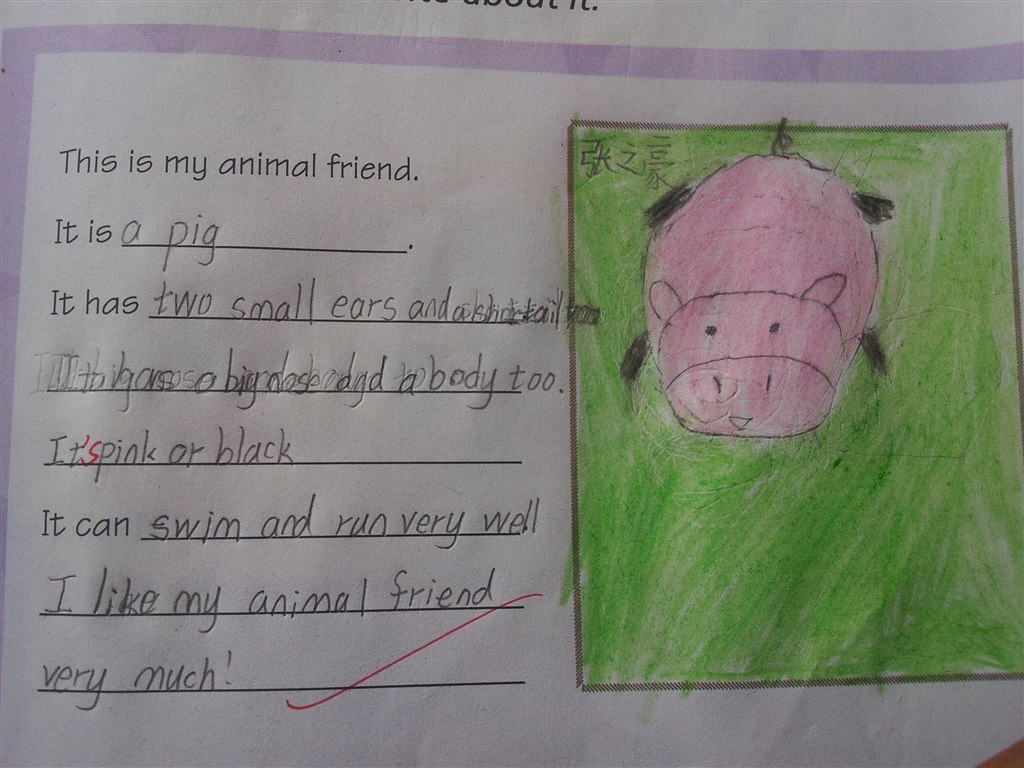 about it.
This is my animal friend.
张之豪
It is a pig.
It has two small ears and a short tail
It has a big nose and a body too.
It's pink or black
It can swim and run very well
I like my animal friend
very much!